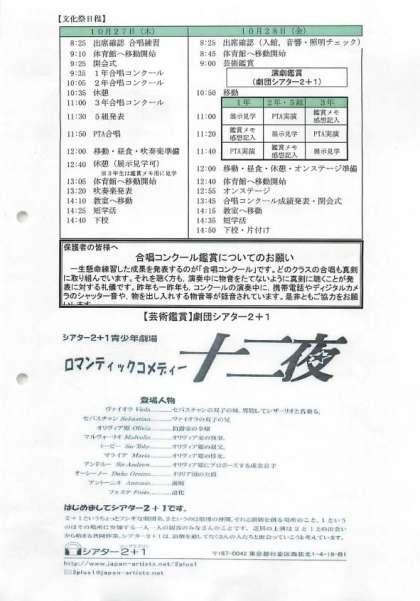 【文化祭日程】
10月27日(木)
8:25 出席確認 合唱練習
9:10 体育館へ移動開始
9:25 開会式
9:35 1年合唱コンクール
10:05 2年合唱コンクール
10:35 休憩
11:00 3年合唱コンクール
11:30 5組発表
11:50 PTA合唱
12:00 移動・昼食・吹奏楽準備
12:40 休憩(展示見学可)
※3年生は鑑賞メモ用に見学
13:05 体育館へ移動開始
13:20 吹奏楽発表
14:10 教室へ移動
14:25 短学活
14:40 下校
10月28日(金)
8:25 出席確認(入館、音響・照明チェック)
8:45 体育館へ移動開始
9:00 芸術鑑賞
演劇鑑賞
(劇団シアター2+1)
10:50 移動
1年 2年・5組 3年
11:00 展示見学 PTA実演 鑑賞メモ 感想記入
11:20 鑑賞メモ 感想記入 展示見学 PTA実演
11:40 PTA実演 鑑賞メモ 感想記入 展示見学
12:00 移動・昼食・休憩・オンステージ準備
12:40 体育館へ移動開始
12:55 オンステージ
13:45 合唱コンクール成績発表・閉会式
14:15 教室へ移動
14:35 短学活
14:50 下校・片付け
保護者の皆様へ
合唱コンクール鑑賞についてのお願い
一生懸命練習した成果を発表するのが「合唱コンクール」です。どのクラスの合唱も真剣
に取り組んでいます。それを聴く方も、演奏中に物音をたてないように真剣に聴くことが発
表に対する礼儀です。昨年も一昨年も、コンクールの演奏中に、携帯電話やディジタルカメ
ラのシャッター音や、物を出し入れする物音等が録音されています。是非ともご協力をお願
【芸術鑑賞】劇団シアター2+1
シアター2+1青少年劇場
ロマンティックコメディー 十二夜
登場人物
ヴァイオラ Viola セバスチャンの双子の妹、男装してシザーリオと名乗る。
セバスチャン Sebastian ヴァイオラの双子の兄
オリヴィア姫 Olivia 伯爵家の令嬢
マルヴォーリオ Malvolio オリヴィア家の執事。
トービー Sir Toby オリヴィア家の叔父。
マライア Maria オリヴィア家の侍女。
アンドルー Sir Andrew オリヴィア姫にプロポーズする成金息子
オーシーノー Duke Orsino イリリア国の公爵
アントーニオ Antonio 船長
フェステ Feste 道化
はじめましてシアター2+1です。
シアター2+1
〒167-0042 東京都杉並区西荻北1-4-18-B1
http://www.japan-artists.net/2plus1
2plus1@japan-artists.net